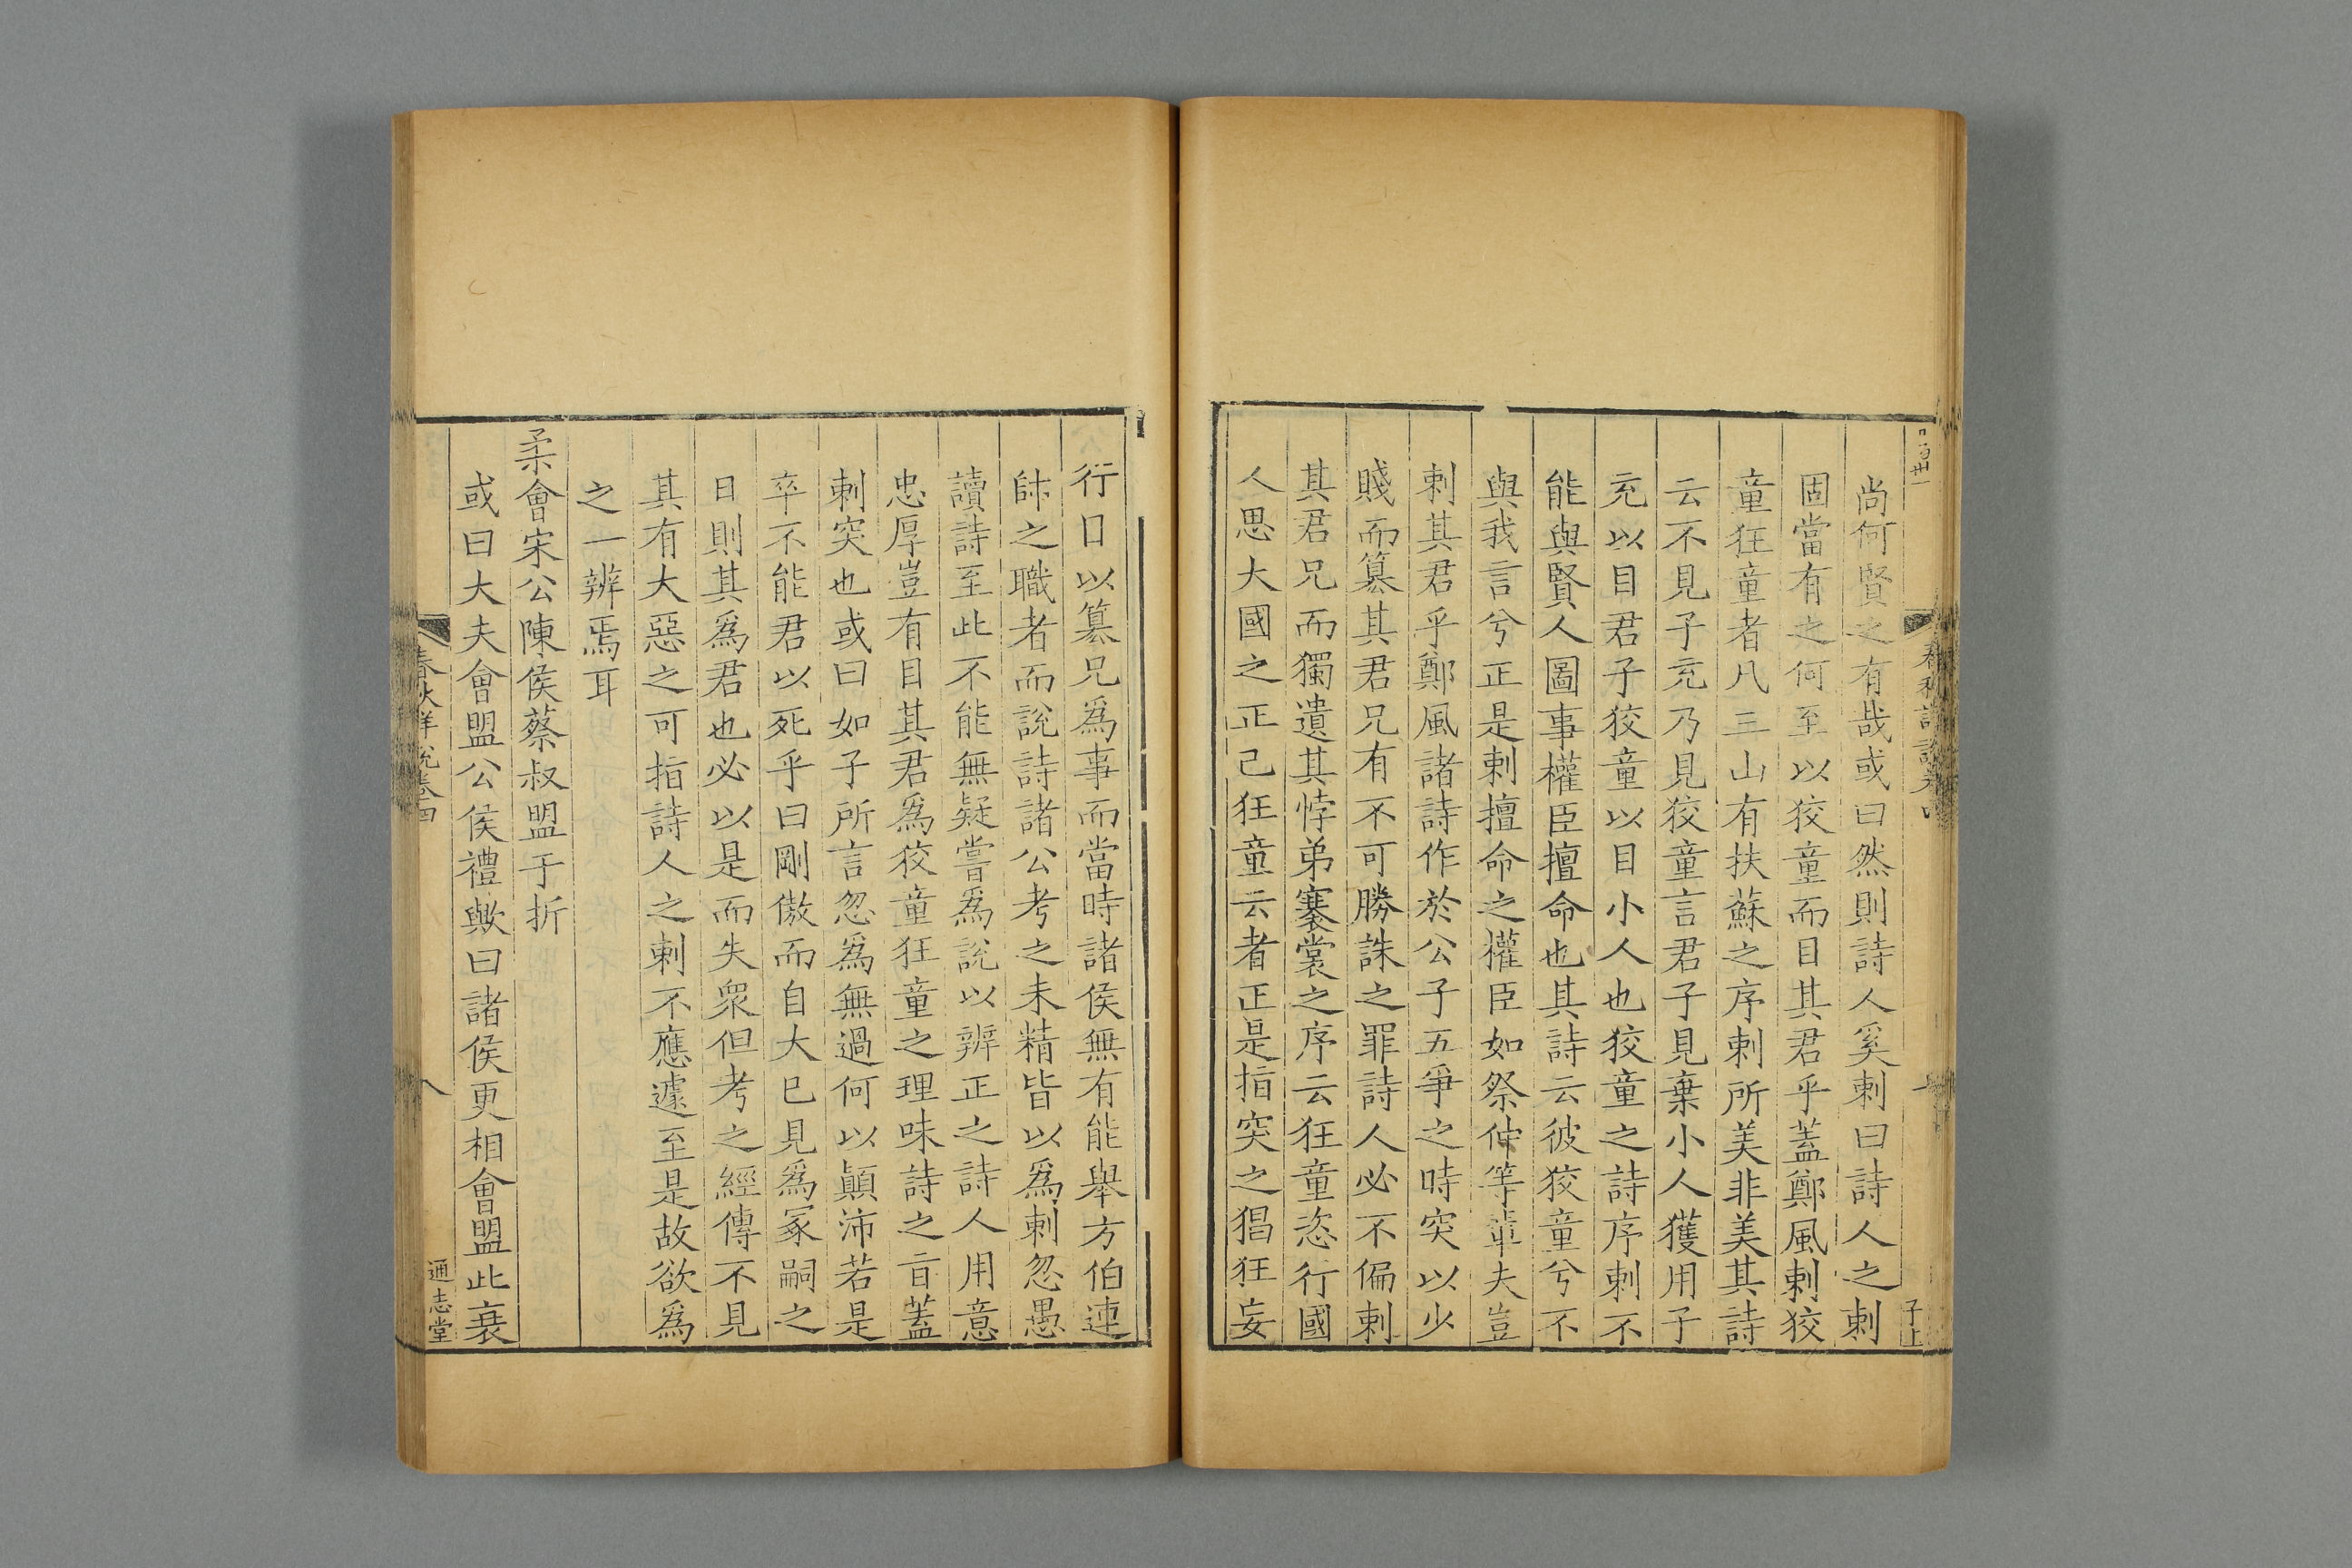 尚何賢之有哉或曰然則詩人奚刺曰詩人之刺
固當有之何至以狡童而目其君乎蓋鄭風刺狡
童狂童者凡三山有扶蘇之序刺所美非美其詩
云不見子充乃見狡童言君子見棄小人獲用子
充以目君子狡童以目小人也狡童之詩序刺不
能與賢人圖事權臣擅命也其詩云彼狡童兮不
與我言兮正是刺擅命之權臣如祭仲等輩夫豈
刺其君乎鄭風諸詩作於公子五爭之時突以少
賤而篡其君兄有不可勝誅之罪詩人必不偏刺
其君兄而獨遺其悖弟褰裳之序云狂童恣行國
人思大國之正己狂童云者正是指突之猖狂妄
行日以篡兄爲事而當時諸侯無有能舉方伯連
帥之職者而說詩諸公考之未精皆以爲刺忽愚
讀詩至此不能無疑嘗爲說以辨正之詩人用意
忠厚豈有目其君爲狡童狂童之理味詩之旨蓋
刺突也或曰如子所言忽爲無過何以顚沛若是
卒不能君以死乎曰剛傲而自大已見爲冢嗣之
日則其爲君也必以是而失衆但考之經傳不見
其有大惡之可指詩人之刺不應遽至是故欲爲
之一辨焉耳
柔會宋公陳侯蔡叔盟于折
或曰大夫會盟公侯禮歟曰諸侯更相會盟此衰
春秋詳說卷四
八
通志堂